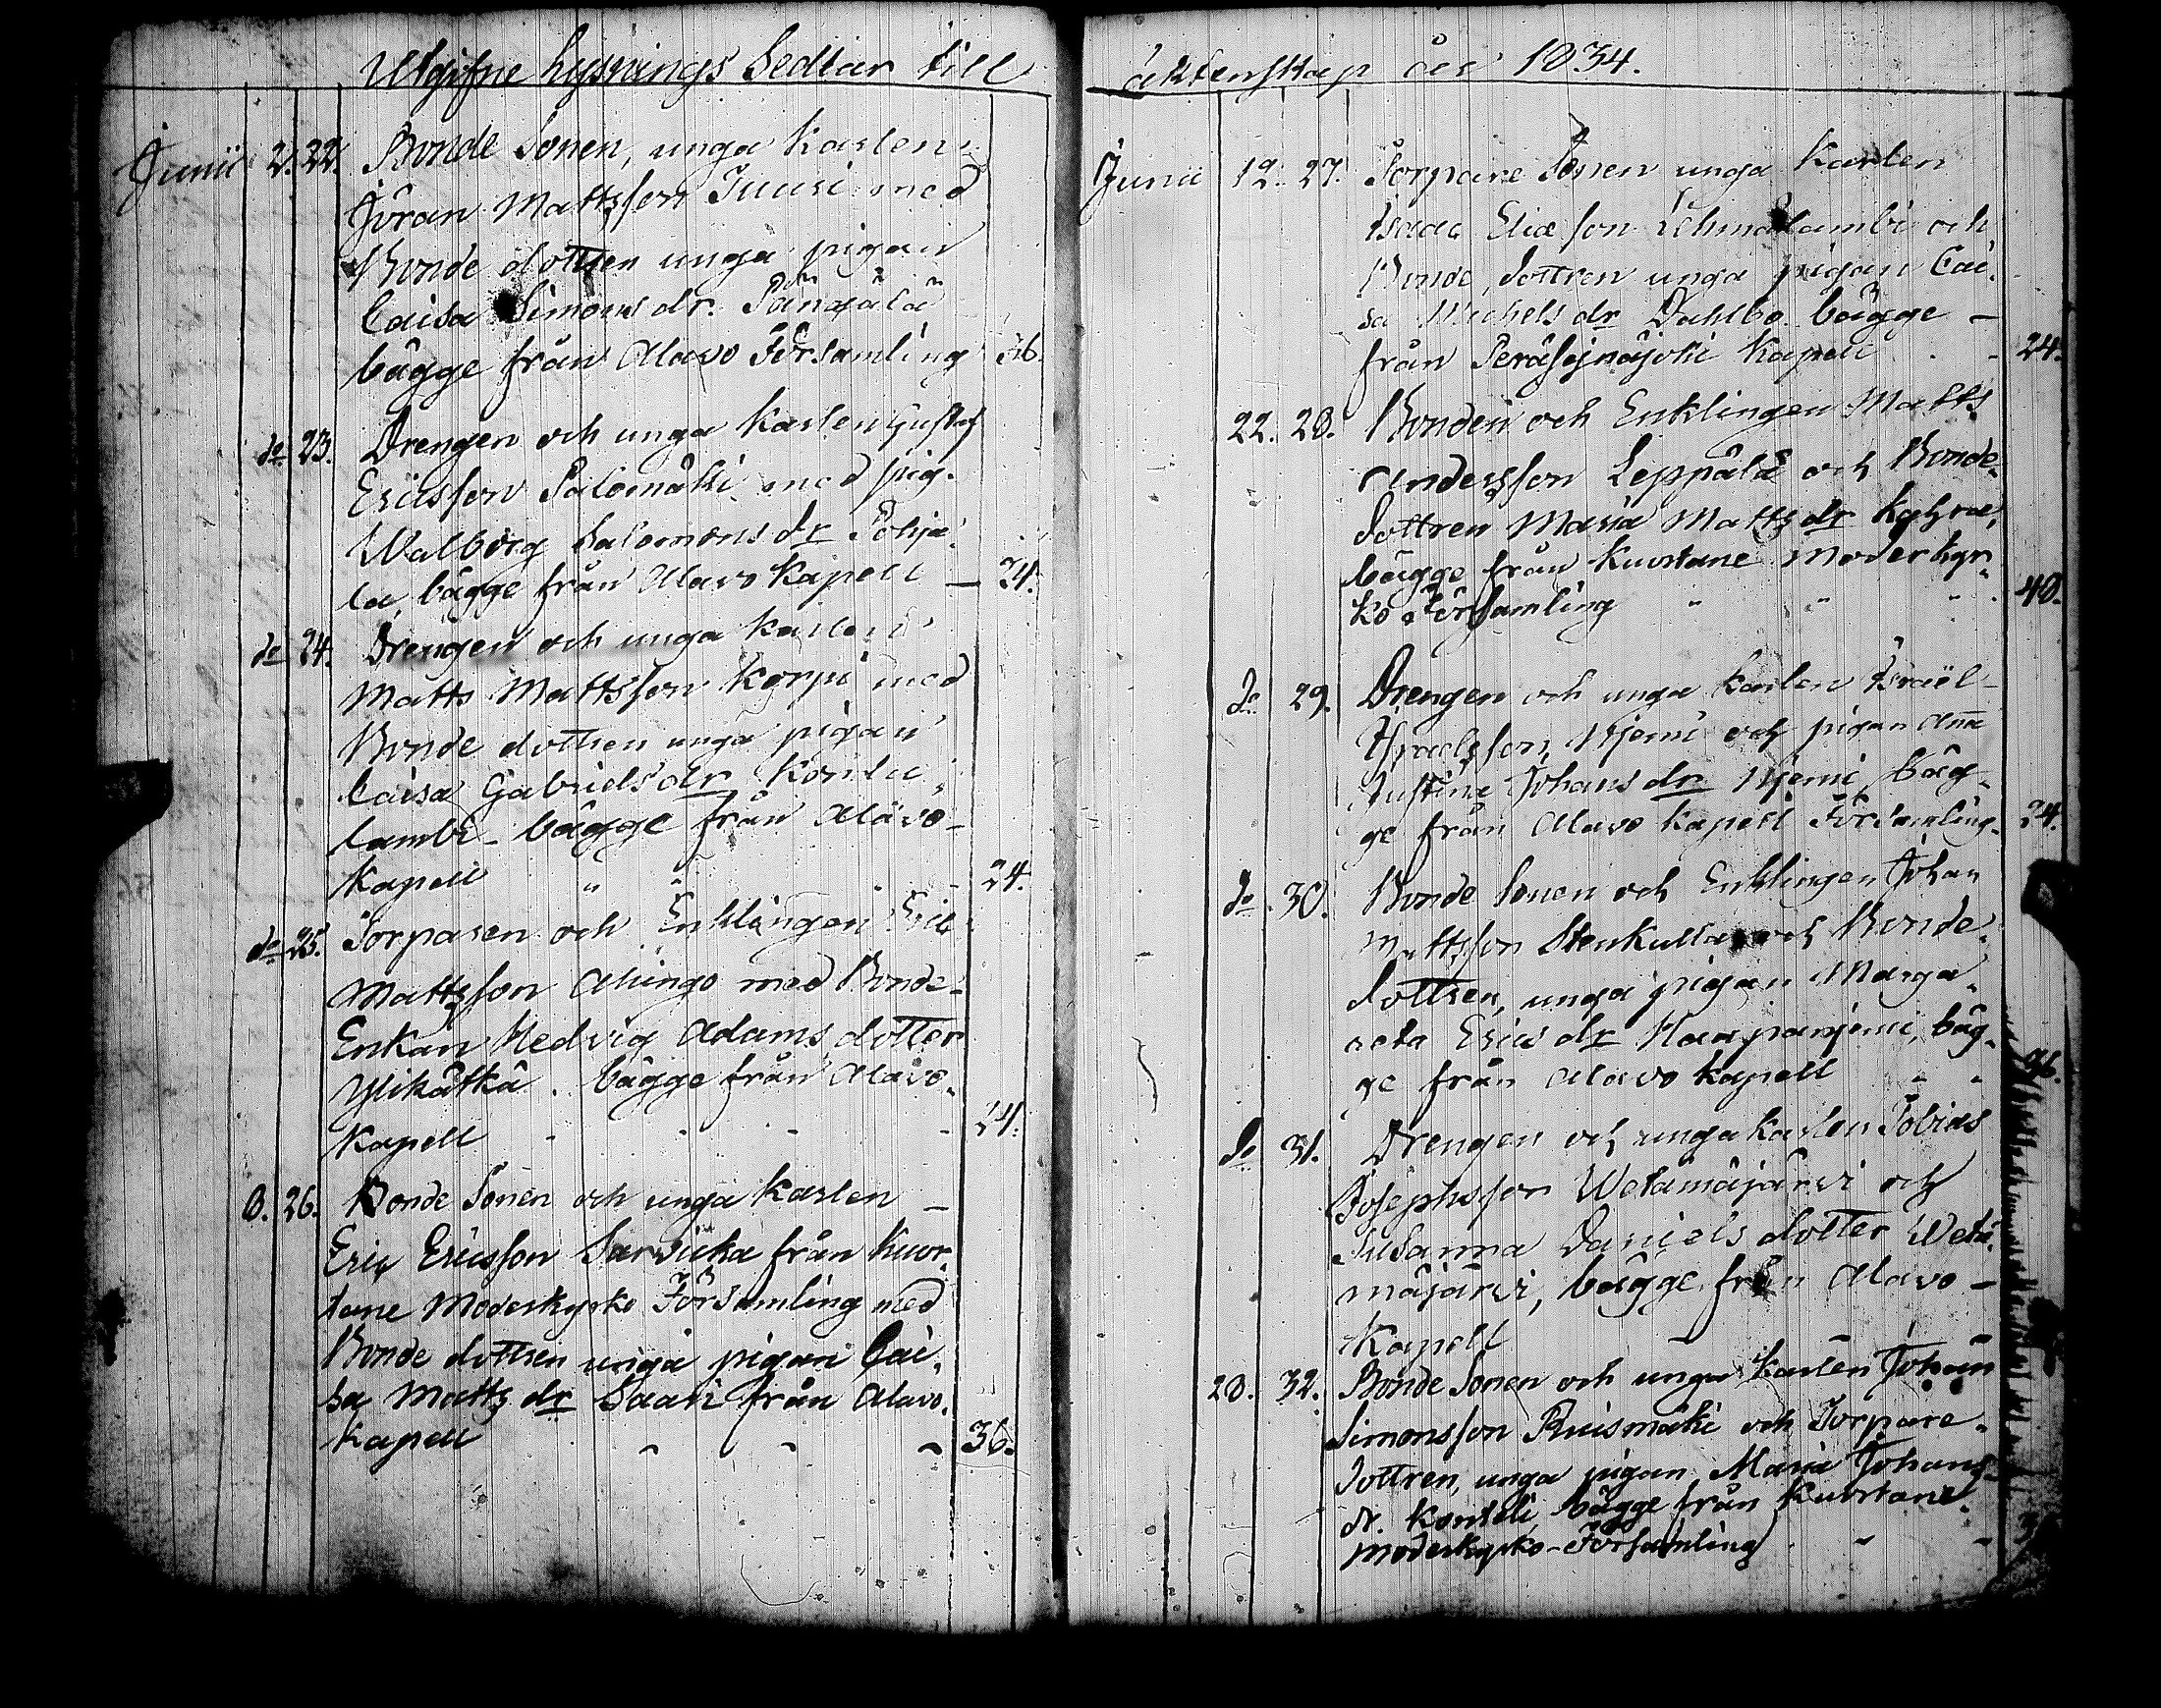 Utgifne Lysnings Sedlar till
Junii 2. 22. Bonde Sonen, unga Karlen
Jöran Mattsson Tuuri med
Bonde dottren unga pigan
Caisa Simons dr. Pängälä
bägge från Alavo Församling 36.
do 23. Drengen och unga Karlen Gustaf
Ericsson Salomäki med pig.
Walborg Salomons dr Pohja-
la, bägge från Alavo Kapell — 24.
do 24. Drengen och unga Karlen
Matts Mattsson Korpi med
Bonde dottren unga pigan
Caisa Gabriels dr Kontu-
lambi bägge från Alavo-
Kapell " " - - 24.
do 25. Torparen och Enklingen Eric
Mattsson Ahingo med Bonde-
Enkan Hedvig Adams dotter
Ylikätkä. bägge från Alavo-
Kapell - - - - 24.
8. 26. Bonde Sonen och unga Karlen —
Eric Ericsson Sarvicka från Kuor-
tane Moderkyrko Församling med
Bonde dottren unga pigan Cai-
sa Matts dr Saari från Alavo-
Kapell - - - 36.
äktenskap år 1834.
Junii 12. 27. Torpare Sonen unga Karlen
Isaac Eliæson Lehmälambi och
Bonde dottren unga pigan Cai-
sa Michels dr Dahlbo bägge —
från Peräsejnäjoki Kapell - - 24.
22. 28. Bonden och Enklingen Matts
Andersson Leppälä och Bonde-
dottren Maria Matts dr Kyhræ,
bägge från Kuortane Moderkyr-
ko Församling " " " 48.
do 29. Drengen och unga Karlen Israël
Israelsson Njemi och pigan Ana
Justina Johans dr Njemi, bäg-
ge från Alavo Kapell Församling. 24.
do 30. Bonde Sonen och Enklingen Johan
Mattsson Stenkulla och Bonde-
dottren, unga pigan Marga-
reta Erics dr Haapanjemi, bäg-
ge från Alavo Kapell - - 96.
do 31. Drengen och unga Karlen Tobias
Josephsson Wetämäjärvi och
Susanna Daniels dotter Wetä-
mäjärvi, bägge från Alavo —
Kapell
28. 32. Bonde Sonen och unga Karlen Johan
Simonsson Ruismäki och Torpare-
dottren, unga pigan Maria Johans-
dr. Kontsli bägge från Kuortane
moderkyrko-Församling - -